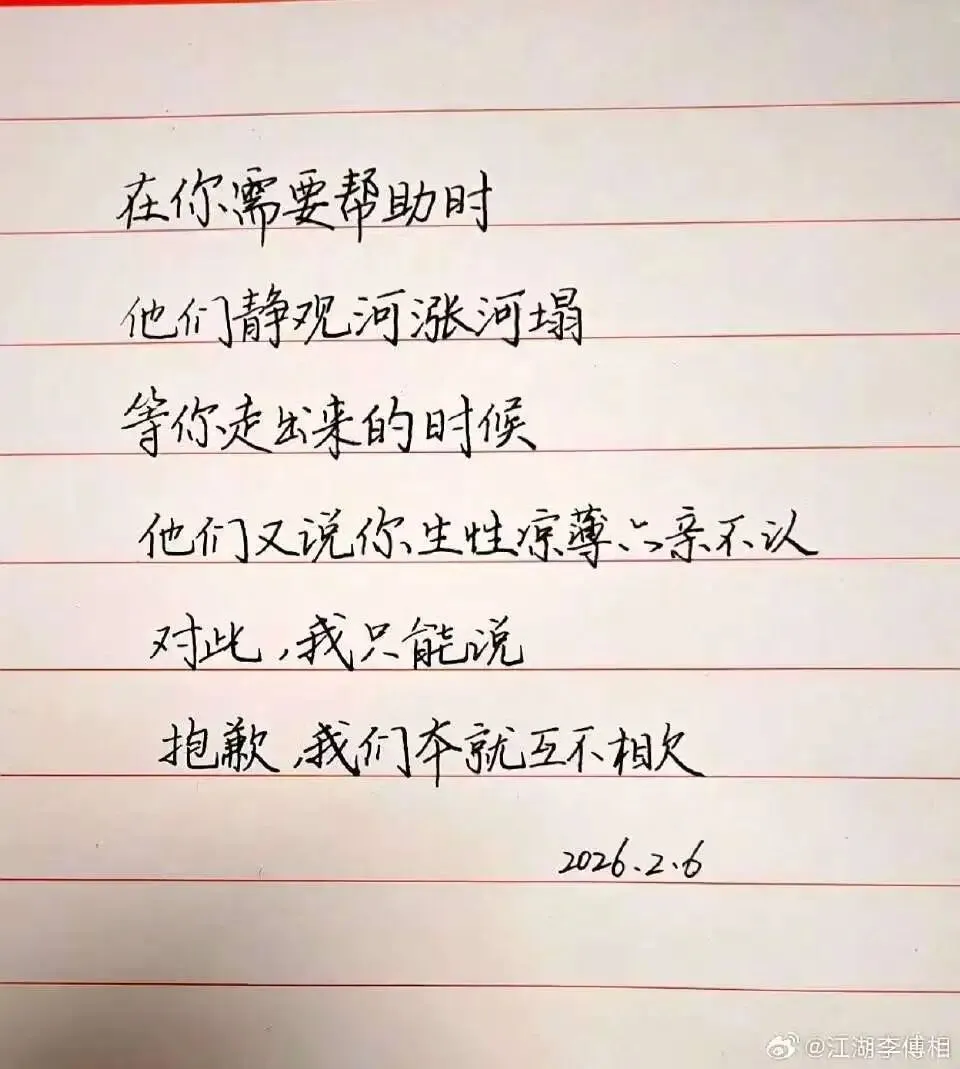 在你需要帮助时
他们静观河涨河塌
等你走出来的时候
他们又说你生性凉薄六亲不认
对此,我只能说
抱歉,我们本就互不相欠
2026.2.6
@江湖李傅相